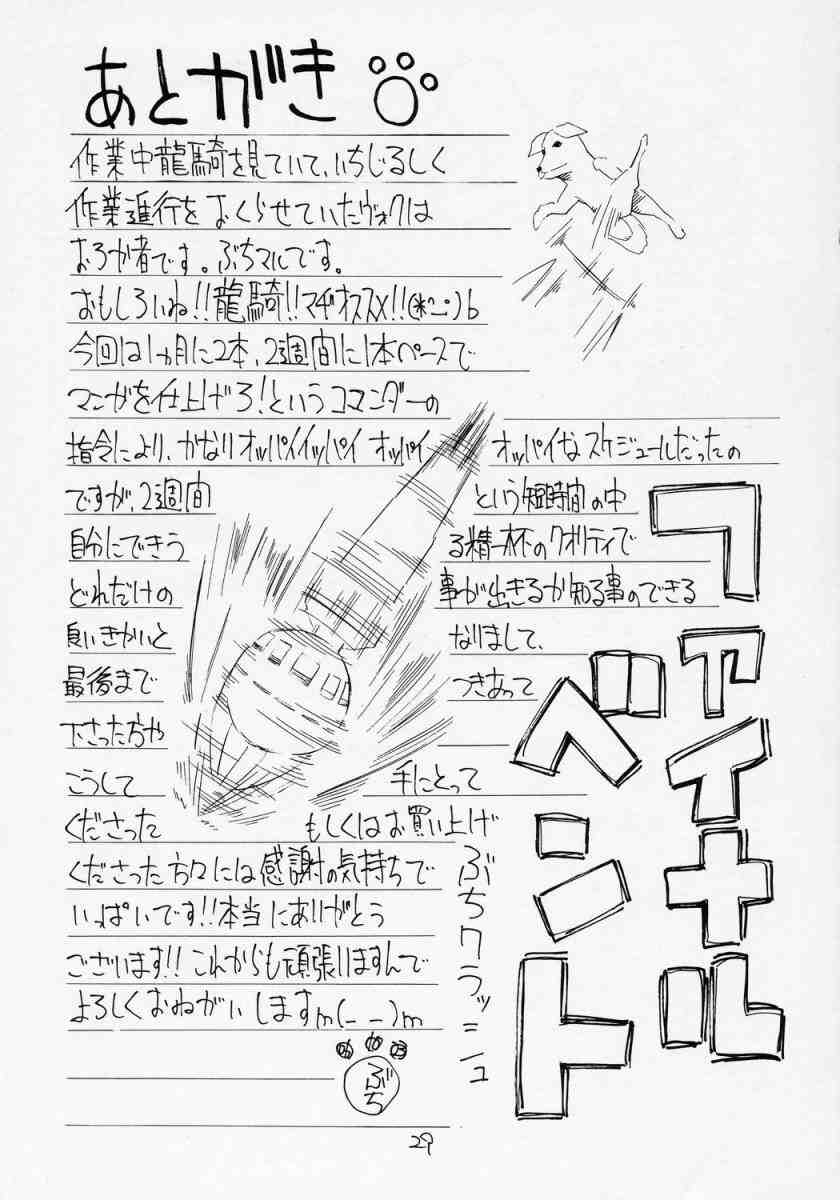 あとがき
作業中龍騎を見ていて、いちじるしく
作業進行をおくらせていたヴォクは
おろか者です。ぶちマルです。
おもしろいね!!龍騎!!マヂオススメ!!(*^-^)b
今回は1ヵ月に2本、2週間に1本ペースで
マンガを仕上げろ!というコマンダーの
指令により、かなりオッパイイッパイ オッパイ オッパイなスケジュールだったの
ですが、2週間 という短時間の中
自分にできう る精一杯のクオリティで
どれだけの 事が出きるか知る事のできる
良いきかいと なりまして、
最後まで つきあって
下さった方や
こうして 手にとって
くださった もしくはお買い上げ
くださった方々には感謝の気持ちで
いっぱいです!!本当にありがとう
ございます!!これからも頑張りますんで
よろしくおねがいしますm(_ _)m
ぶち
ファイナル
ベント
ぶちクラッシュ
29